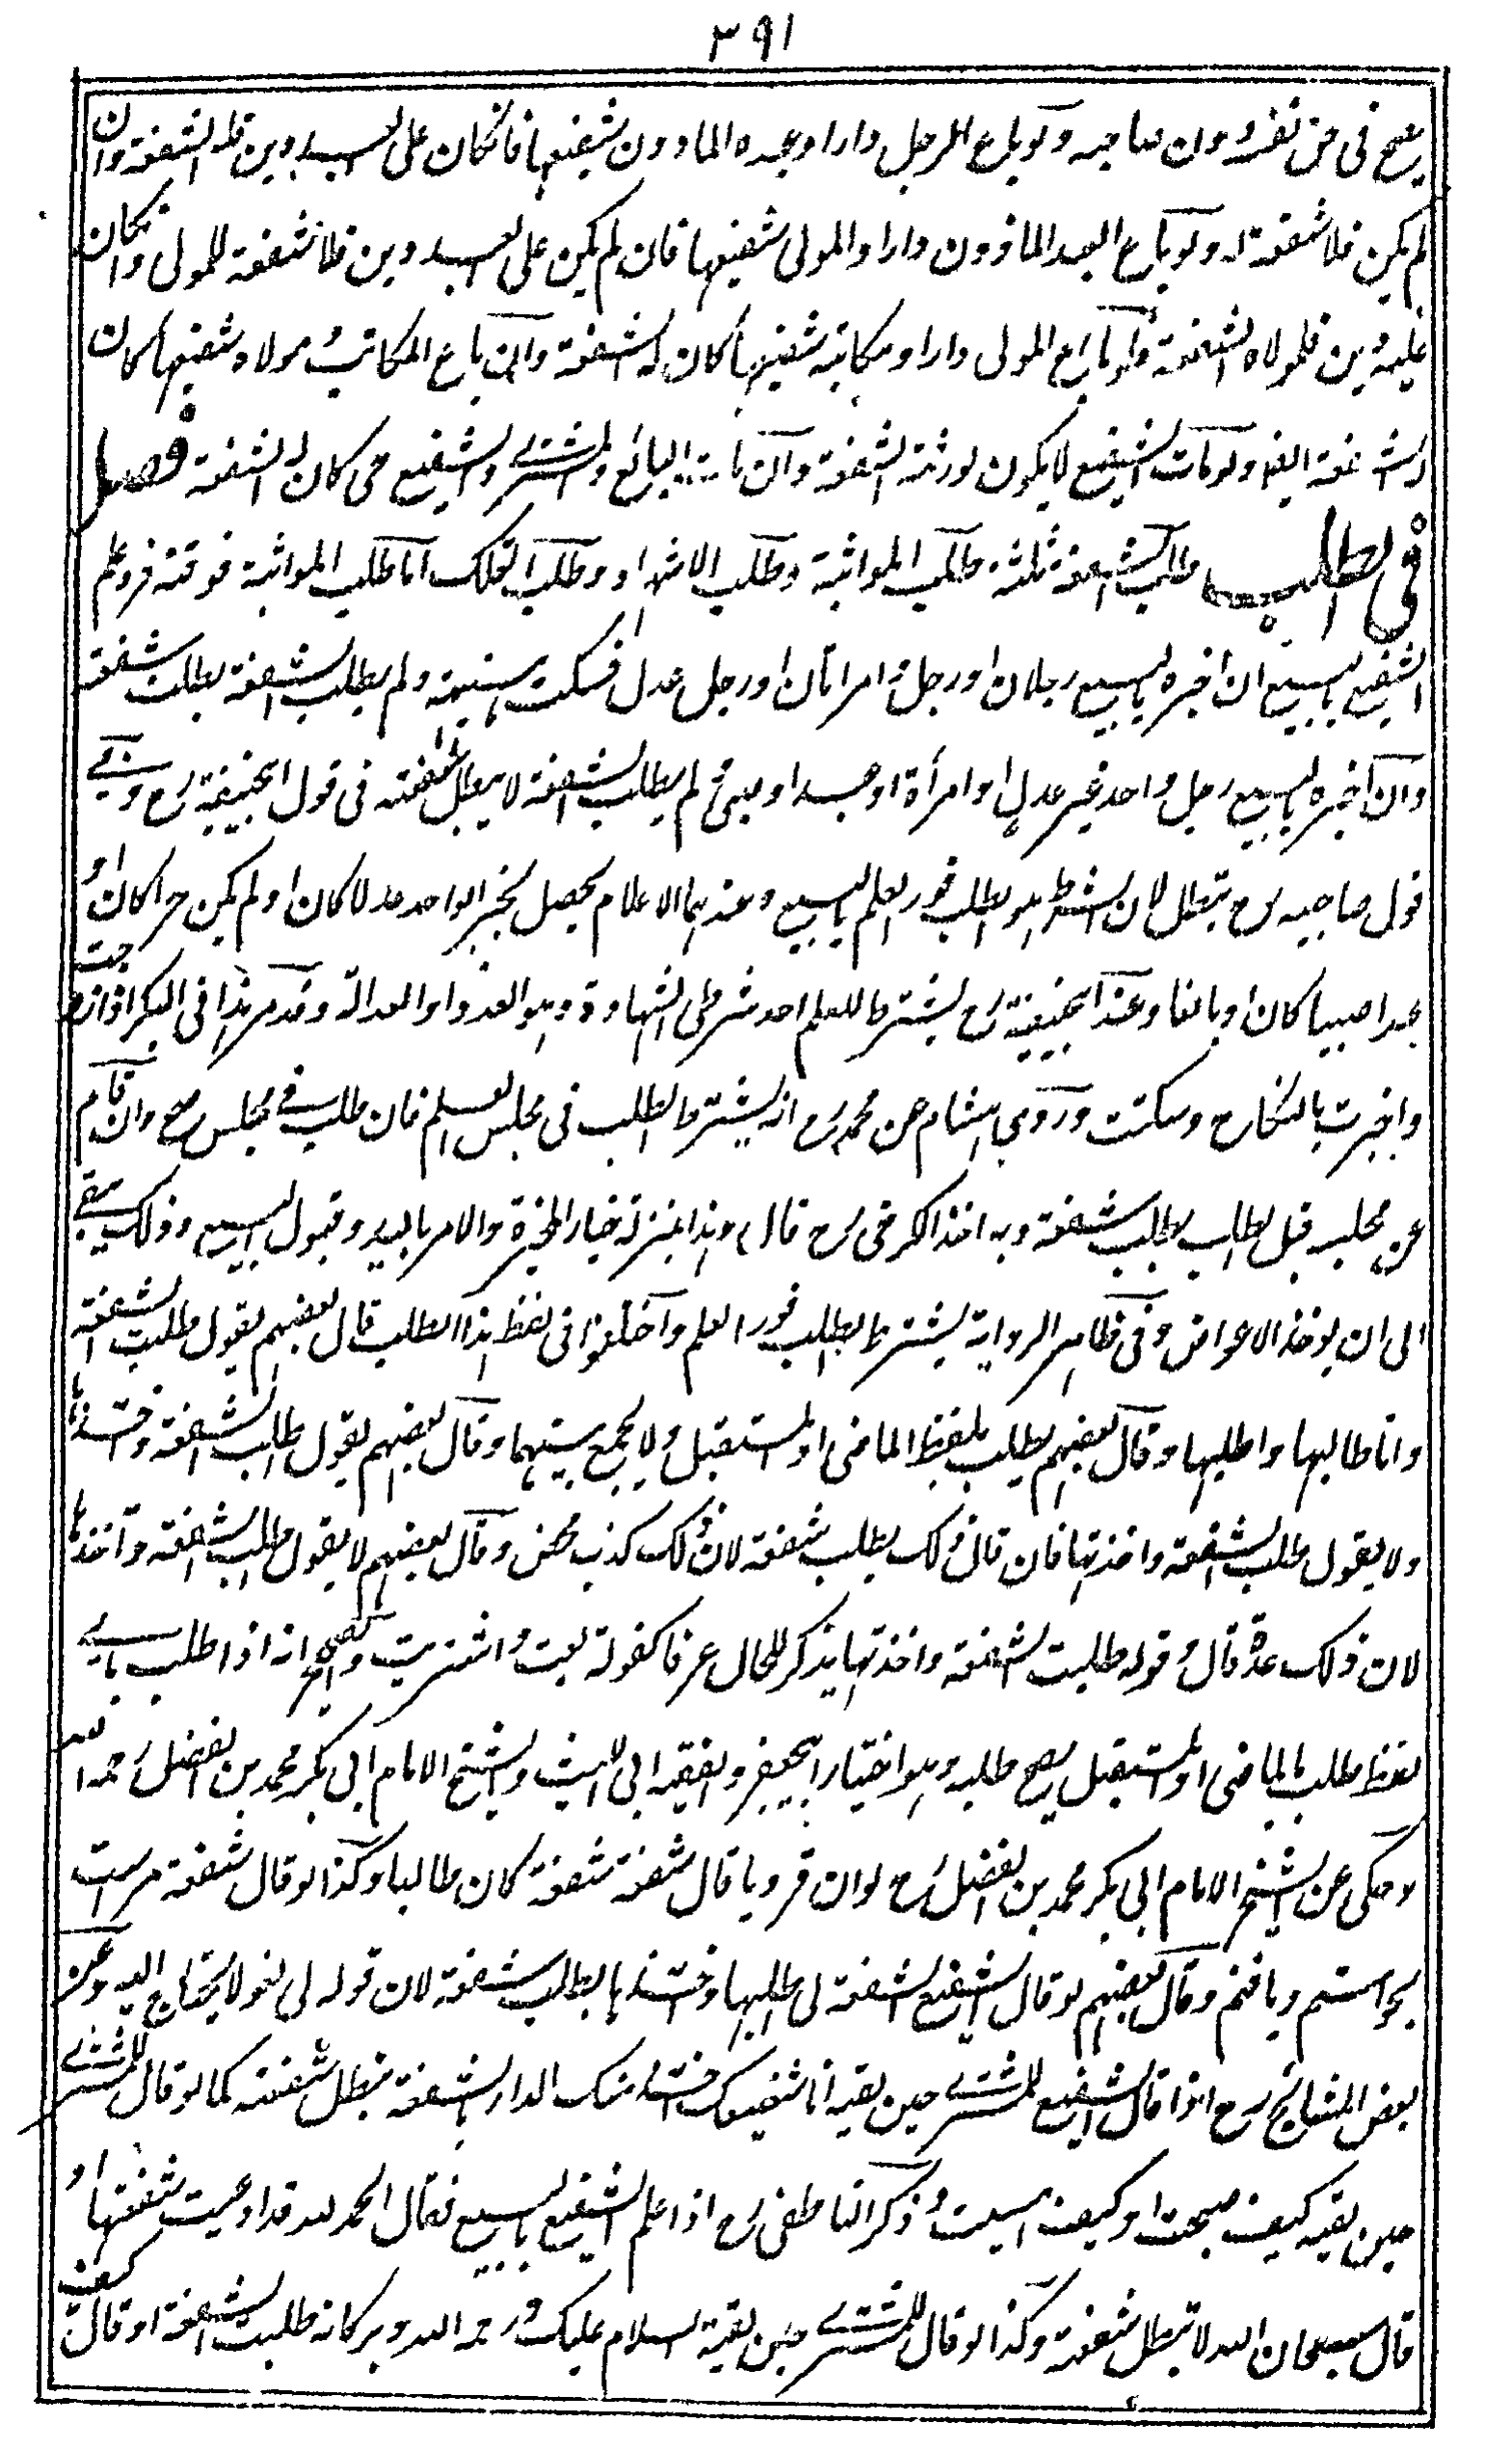 ٣٩١
يصح في حق نفسه دون صاحبه ولو باع الرجل دارا وعبده الماذون شفيعها فان كان على العبد دين فله الشفعة وان
لم يكن فلا شفعة له ولو باع العبد الماذون دارا والمولى شفيعها فان لم يكن على العبد دين فلا شفعة للمولى وان كان
عليه دين فلمولاه الشفعة ولو باع المولى دارا ومكاتبه شفيعها كان له الشفعة وان باع المكاتب ومولاه شفيعها كان
له الشفعة ايضا ولو مات الشفيع لا يكون لورثته الشفعة وان مات البائع والمشتري والشفيع حي كان له الشفعة فصل
في الطلب طلب الشفعة ثلثة طلب المواثبة وطلب الاشهاد وطلب التملك اما طلب المواثبة فوقته فور علم
الشفيع بالبيع ان اخبره بالبيع رجلان او رجل وامرأتان او رجل عدل فسكت هنيهة ولم يطلب الشفعة بطلت شفعته
وان اخبره بالبيع رجل واحد غير عدل او امرأة او عبد او صبي ولم يطلب الشفعة لا يبطل شفعته في قول ابيحنيفة رح وفي
قول صاحبيه رح تبطل لان الشرط هو الطلب فور العلم بالبيع وعندهما الاعلام يحصل بخبر الواحد عدلا كان او لم يكن حرا كان او
عبدا صبيا كان او بالغا وعند ابيحنيفة رح يشترط للعلم احد شرطي الشهادة وهو العدد او العدالة وقد مر هذا في البكر اذا زوجت
واخبرت بالنكاح وسكتت وروى هشام عن محمد رح انه يشترط الطلب في مجلس العلم فان طلب في مجلس صح وان قام
عن مجلسه قبل الطلب بطلت شفعته وبه اخذ الكرخي رح قال وهذا بمنزلة خيار المخيرة والامر باليد وقبول البيع وذلك يبقى
الى ان يوخذ الاعراض وفي ظاهر الرواية يشترط الطلب فور العلم واختلفوا في لفظ هذا الطلب قال بعضهم يقول طلبت الشفعة
وانا طالبها واطلبها وقال بعضهم يطلب بلفظ الماضي او المستقبل ولا يجمع بينهما وقال بعضهم يقول طلبت الشفعة واخذتها
ولا يقول طلبت الشفعة واخذتها فان قال ذلك بطلت شفعته لان ذلك كذب محض وقال بعضهم لا يقول اطلب الشفعة وآخذها
لان ذلك عدة قال وقوله طلبت الشفعة واخذتها يذكر للحال عرفا كقوله بعت واشتريت والصحيح انه اذا طلب باي
لفظ طلب بالماضي او المستقبل يصح طلبه وهو اختيار ابي جعفر والفقيه ابي الليث والشيخ الامام ابي بكر محمد بن الفضل رحمه الله
وحكى عن الشيخ الامام ابي بكر محمد بن الفضل رح لو ان قرويا قال شفعة شفعة كان طالبا وكذا لو قال شفعه مراست
بخواستم ويافتم وقال بعضهم لو قال الشفيع الشفعة لي اطلبها واخذتها بطلت شفعته لان قوله لي لغو لا يحتاج اليه وعن
بعض المشائخ رح اذا قال الشفيع للمشتري حين لقيه انا شفيعك اخذت منك الدار بالشفعة تبطل شفعته كما لو قال للمشتري
حين لقيه كيف اصبحت او كيف امسيت وذكر الناطفي رح اذا علم الشفيع بالبيع فقال الحمد لله قد ادعيت شفعتها او
قال سبحان الله لا تبطل شفعته وكذا لو قال للمشتري حين لقيه السلام عليك ورحمة الله وبركاته طلبت الشفعة او قال كيف